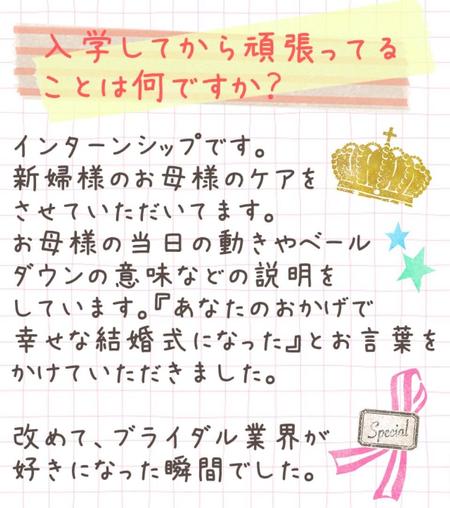 入学してから頑張ってる
ことは何ですか?
インターンシップです。
新婦様のお母様のケアを
させていただいてます。
お母様の当日の動きやベール
ダウンの意味などの説明を
しています。『あなたのおかげで
幸せな結婚式になった』とお言葉を
かけていただきました。
改めて、ブライダル業界が
好きになった瞬間でした。
Special